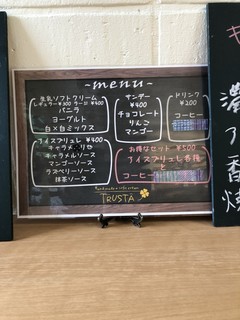 -menu-
生乳ソフトクリーム
レギュラー¥300 ラージ ¥400
バニラ
ヨーグルト
白×白ミックス
サンデー
¥400
チョコレート
りんご
マンゴー
ドリンク
¥200
コーヒー
アイスブリュレ ¥400
キャラメルソース
マンゴーソース
ラズベリーソース
抹茶ソース
お得なセット ¥500
アイスブリュレ各種
と
コーヒー
TRUSTA
濃